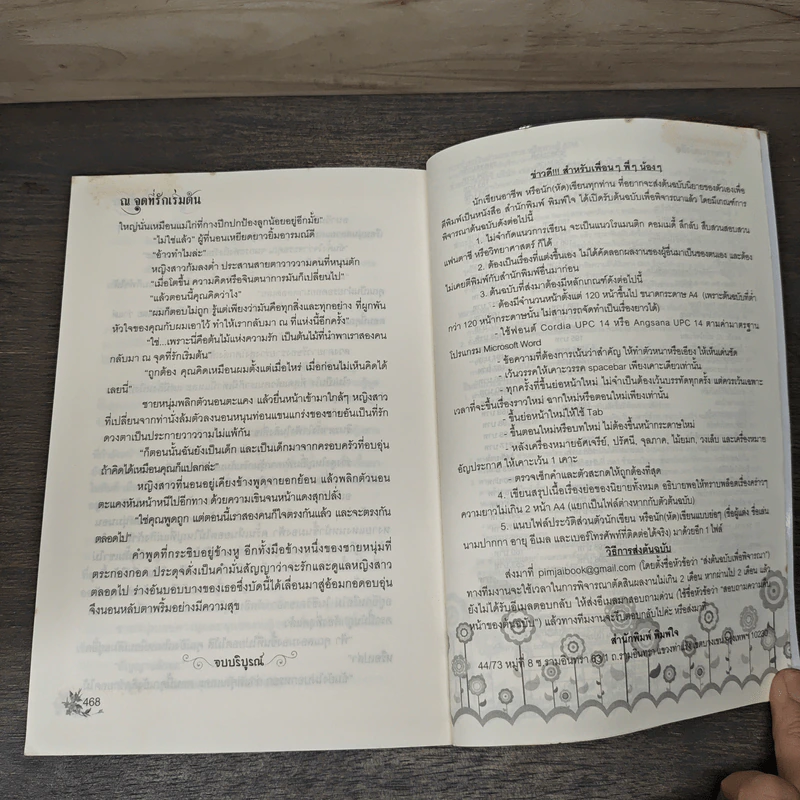 ณ จุดที่รักเริ่มต้น
ใหญ่นั่นเหมือนแม่ไก่ที่กางปีกปกป้องลูกน้อยอยู่อีกมั้ย"
"ไม่ใช่แล้ว" ผู้ที่นอนเหยียดยาวยิ้มอารมณ์ดี
"อ้าวทำไมล่ะ"
หญิงสาวก้มลงต่ำ ประสานสายตาวาววามคนที่หนุนตัก
"เมื่อโตขึ้น ความคิดหรือจินตนาการมันก็เปลี่ยนไป"
"แล้วตอนนี้คุณคิดว่าไง"
"ผมก็ตอบไม่ถูก รู้แต่เพียงว่ามันคือทุกสิ่งและทุกอย่าง ที่ผูกพัน
หัวใจของคุณกับผมเอาไว้ ทำให้เรากลับมา ณ ที่แห่งนี้อีกครั้ง"
"ใช่...เพราะนี่คือต้นไม้แห่งความรัก เป็นต้นไม้ที่นำพาเราสองคน
กลับมา ณ จุดที่รักเริ่มต้น"
"ถูกต้อง คุณคิดเหมือนผมตั้งแต่เมื่อไหร่ เมื่อก่อนไม่เห็นคิดได้
เลยนี่"
ชายหนุ่มพลิกตัวนอนตะแคง แล้วยื่นหน้าเข้ามาใกล้ๆ หญิงสาว
ที่เปลี่ยนจากท่านั่งล้มตัวลงนอนหนุนท่อนแขนแกร่งของชายอันเป็นที่รัก
ดวงตาเป็นประกายวาววามไม่แพ้กัน
"ก็ตอนนั้นฉันยังเป็นเด็ก และเป็นเด็กมาจากครอบครัวที่อบอุ่น
ถ้าคิดได้เหมือนคุณก็แปลกล่ะ"
หญิงสาวที่นอนอยู่เคียงข้างพูดจายอกย้อน แล้วพลิกตัวนอน
ตะแคงหันหน้าหนีไปอีกทาง ด้วยความเขินจนหน้าแดงสุกปลั่ง
"ใช่คุณพูดถูก แต่ตอนนี้เราสองคนก็ใจตรงกันแล้ว และจะตรงกัน
ตลอดไป"
คำพูดที่กระซิบอยู่ข้างหู อีกทั้งมือข้างหนึ่งของชายหนุ่มที่
ตระกองกอด ประดุจดั่งเป็นคำมั่นสัญญาว่าจะรักและดูแลหญิงสาว
ตลอดไป ร่างอันบอบบางของเธอซึ่งบัดนี้ได้เลื่อนมาสู่อ้อมกอดอบอุ่น
จึงนอนหลับตาพริ้มอย่างมีความสุข
จบบริบูรณ์
468
ข่าวดี!!! สำหรับเพื่อนๆ พี่ๆ น้องๆ
นักเขียนอาชีพ หรือนัก(หัด)เขียนทุกท่าน ที่อยากจะส่งต้นฉบับนิยายของตัวเองเพื่อ
ตีพิมพ์เป็นหนังสือ สำนักพิมพ์ พิมพ์ใจ ได้เปิดรับต้นฉบับเพื่อพิจารณาแล้ว โดยมีเกณฑ์การ
พิจารณาต้นฉบับดังต่อไปนี้
1. ไม่จำกัดแนวการเขียน จะเป็นแนวโรแมนติก คอมเมดี้ ลึกลับ สืบสวนสอบสวน
แฟนตาซี หรือวิทยาศาสตร์ ก็ได้
2. ต้องเป็นเรื่องที่แต่งขึ้นเอง ไม่ได้คัดลอกผลงานของผู้อื่นมาเป็นของตนเอง และต้อง
ไม่เคยตีพิมพ์กับสำนักพิมพ์อื่นมาก่อน
3. ต้นฉบับที่ส่งมาต้องมีหลักเกณฑ์ดังต่อไปนี้
- ต้องมีจำนวนหน้าตั้งแต่ 120 หน้าขึ้นไป ขนาดกระดาษ A4 (เพราะต้นฉบับที่ต่ำ
กว่า 120 หน้ากระดาษนั้น ไม่สามารถจัดทำเป็นเรื่องยาวได้)
- ใช้ฟอนต์ Cordia UPC 14 หรือ Angsana UPC 14 ตามค่ามาตรฐาน
โปรแกรม Microsoft Word
- ข้อความที่ต้องการเน้นว่าสำคัญ ให้ทำตัวหนาหรือเอียง ให้เห็นเด่นชัด
- เว้นวรรคให้เคาะวรรค spacebar เพียงเคาะเดียวเท่านั้น
- ทุกครั้งที่ขึ้นย่อหน้าใหม่ ไม่จำเป็นต้องเว้นบรรทัดทุกครั้ง แต่ควรเว้นเฉพาะ
เวลาที่จะขึ้นเรื่องราวใหม่ ฉากใหม่หรือตอนใหม่เพียงเท่านั้น
- ขึ้นย่อหน้าใหม่ให้ใช้ Tab
- ขึ้นตอนใหม่หรือบทใหม่ ไม่ต้องขึ้นหน้ากระดาษใหม่
- หลังเครื่องหมายอัศเจรีย์, ปรัศนี, จุลภาค, ไม้ยมก, วงเล็บ และเครื่องหมาย
อัญประกาศ ให้เคาะเว้น 1 เคาะ
- ตรวจเช็กคำและตัวสะกดให้ถูกต้องที่สุด
4. เขียนสรุปเนื้อเรื่องย่อของนิยายทั้งหมด อธิบายพอให้ทราบพล็อตเรื่องคร่าวๆ
ความยาวไม่เกิน 2 หน้า A4 (แยกเป็นไฟล์ต่างหากกับตัวต้นฉบับ)
5. แนบไฟล์ประวัติส่วนตัวนักเขียน หรือนัก(หัด)เขียนแบบย่อๆ (ชื่อผู้แต่ง ชื่อเล่น
นามปากกา อายุ อีเมล และเบอร์โทรศัพท์ที่ติดต่อได้จริง) มาด้วยอีก 1 ไฟล์
วิธีการส่งต้นฉบับ
ส่งมาที่ pimjaibook@gmail.com (โดยตั้งชื่อหัวข้อว่า "ส่งต้นฉบับเพื่อพิจารณา")
ทางทีมงานจะใช้เวลาในการพิจารณาตัดสินผลงานไม่เกิน 2 เดือน หากผ่านไป 2 เดือน แล้ว
ยังไม่ได้รับอีเมลตอบกลับ ให้ส่งอีเมลมาสอบถามด่วน (ใช้ชื่อหัวข้อว่า "สอบถามความคืบ
หน้าของต้นฉบับ") แล้วทางทีมงานจะรีบตอบกลับไปค่ะ
สำนักพิมพ์ พิมพ์ใจ
44/73 หมู่ที่ 8 ซ.รามอินทรา 63/1 ถ.รามอินทรา แขวงท่าแร้ง เขตบางเขน กรุงเทพฯ 10230